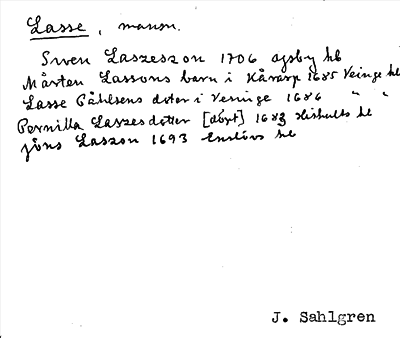 Lasse, mansn.
Swen Laszeszon 1706 Agsby kb
Mårten Lassons barn i Kåraxp 1685 Veinge kb
Lasse Påhlsens doter i Veninge 1686 " "
Pernilla Laszesdotter [döpt] 1683 Hishults kb
Jöns Laszon 1693 Enslövs kb
J. Sahlgren